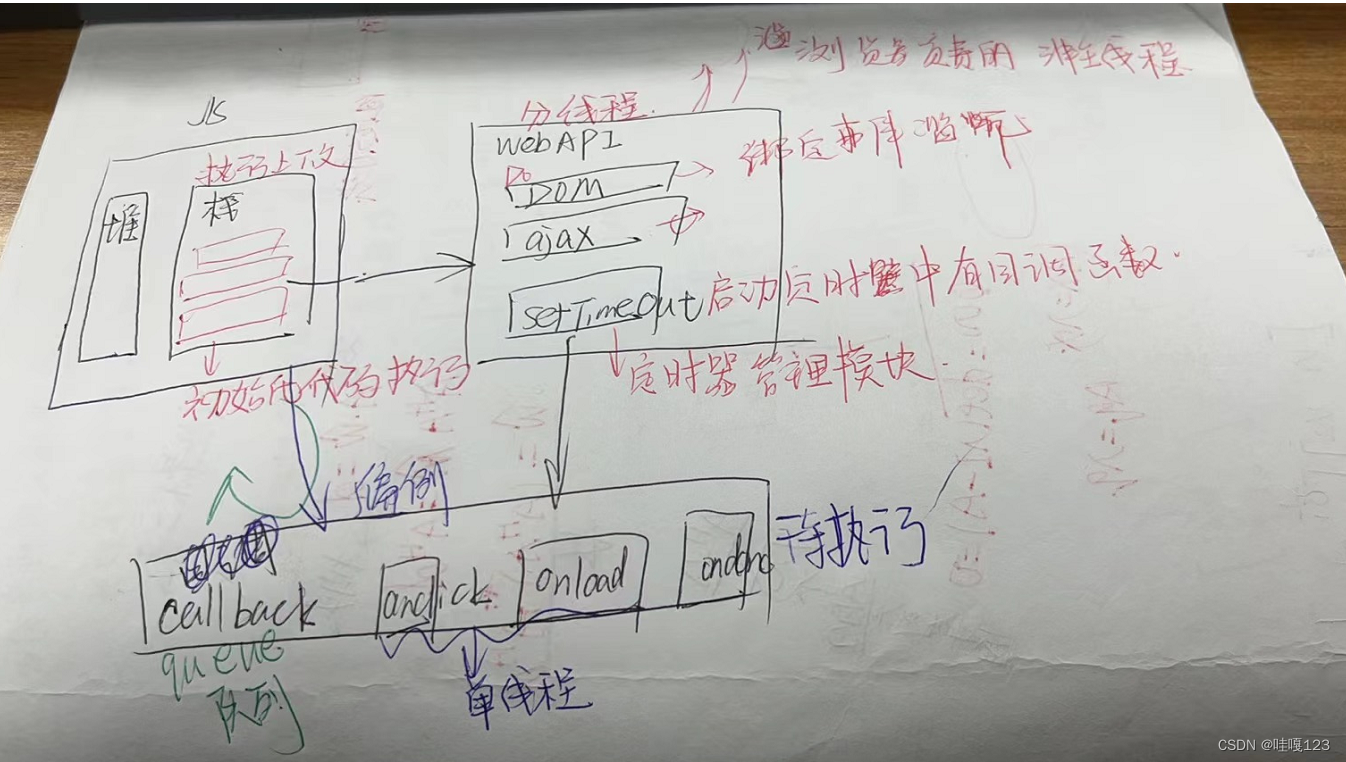 JS
执行上下文
堆
栈
初始化代码执行
分线程
webAPI
DOM
ajax
setTimeout
浏览器负责的
线程
绑定事件监听
启动定时器中有回调函数.
定时器管理模块.
callback
onclick
onload
待执行
queue
队列
单线程
CSDN @哇嘎123